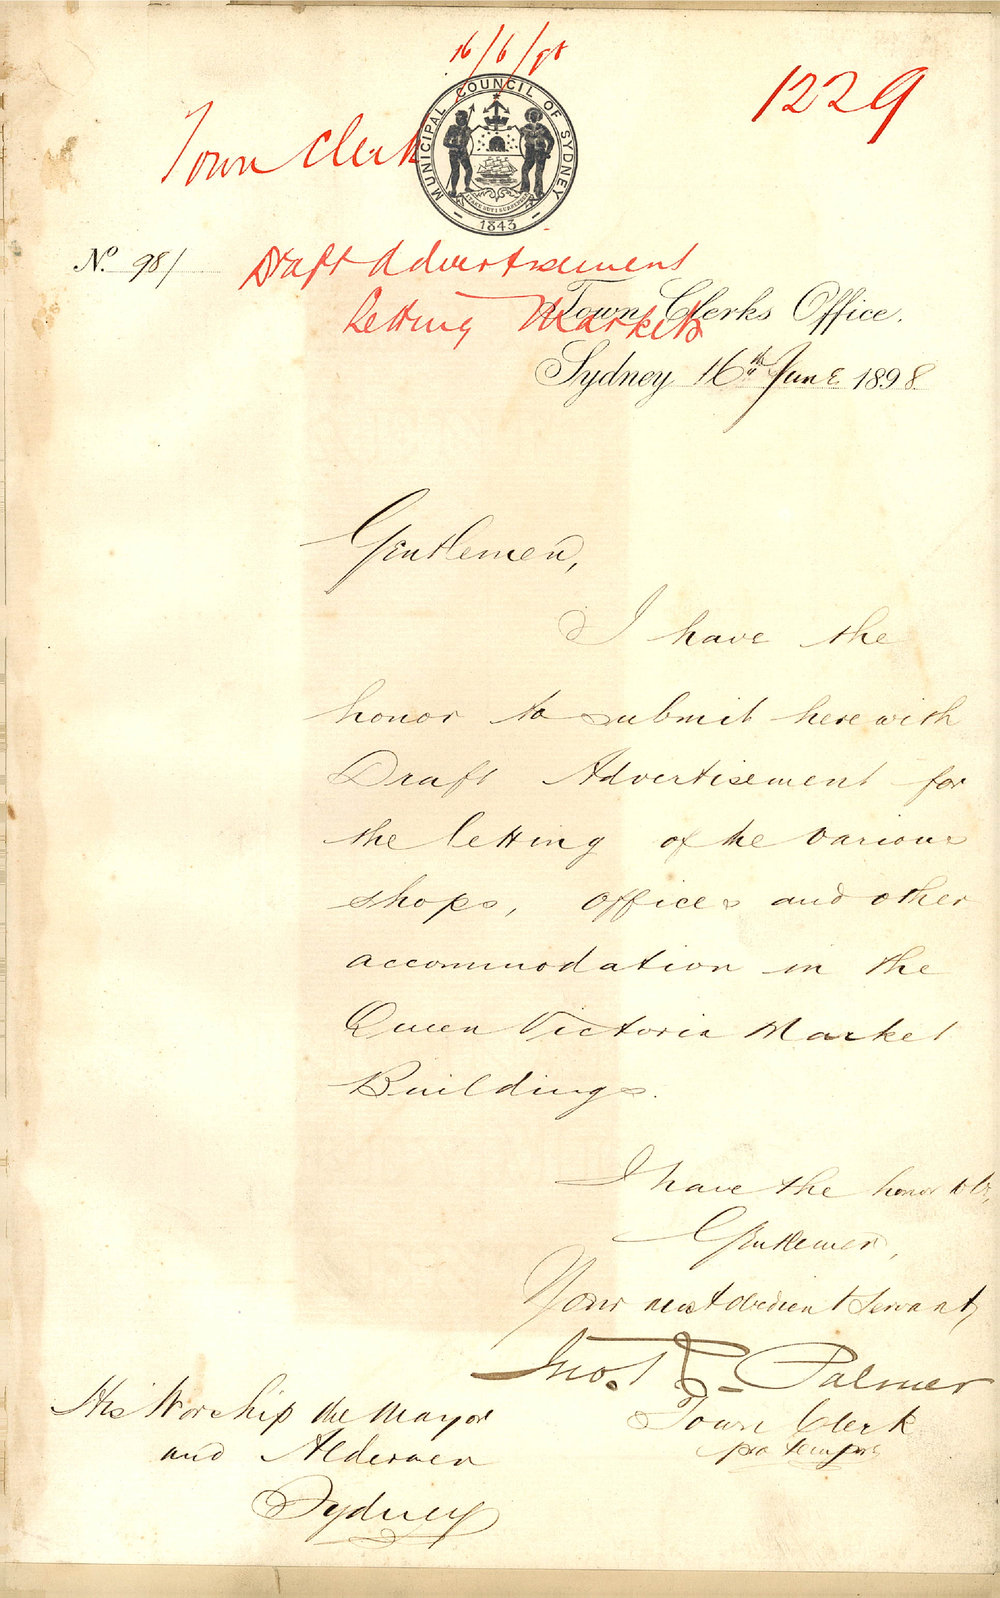 16/6/98
1229
Town Clerk
MUNICIPAL COUNCIL OF SYDNEY
1843
No. 981
Draft Advertisement
Letting Markets
Town Clerks Office.
Sydney 16th June 1898
Gentlemen,
I have the
honor to submit herewith
Draft Advertisement for
the letting of the various
shops, offices and other
accommodation in the
Queen Victoria Market
Buildings.
I have the honor to be,
Gentlemen,
Your most obedient servant,
Palmer
Town Clerk
pro tempore
His Worship the Mayor
and Aldermen
Sydney